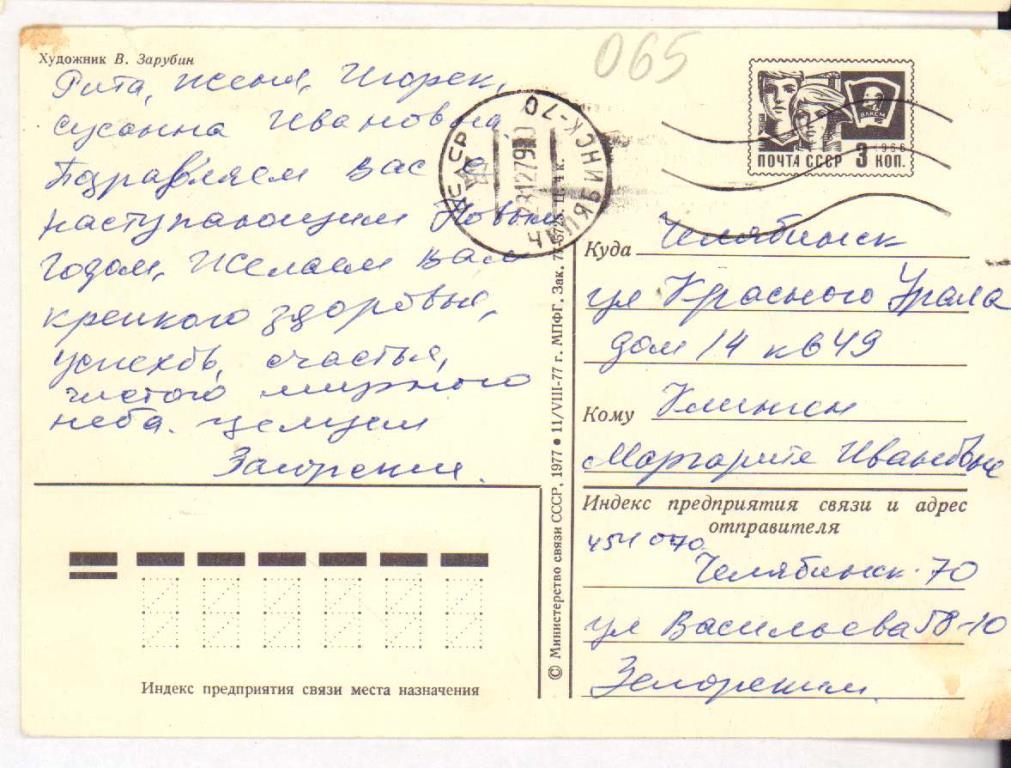 Художник В. Зарубин
065
Рита, Женя, Игорек,
Сусанна Ивановна
Поздравляем Вас с
наступающим Новым
годом, Желаем Вам
крепкого здоровья,
успехов, счастья,
чистого мирного
неба. Целуем
Загорские.
СССР
ЧЕЛЯБИНСК-70
281279
ПОЧТА СССР 3 КОП.
1966
ВЛКСМ
Куда Челябинск
ул Красного Урала
дом 14 кв 49
Кому
Маргарите Ивановне
Индекс предприятия связи и адрес
отправителя
454070
Челябинск-70
ул Васильева 58-10
© Министерство связи СССР, 1977 • 11/VIII-77 г. МПФГ. Зак.
Индекс предприятия связи места назначения